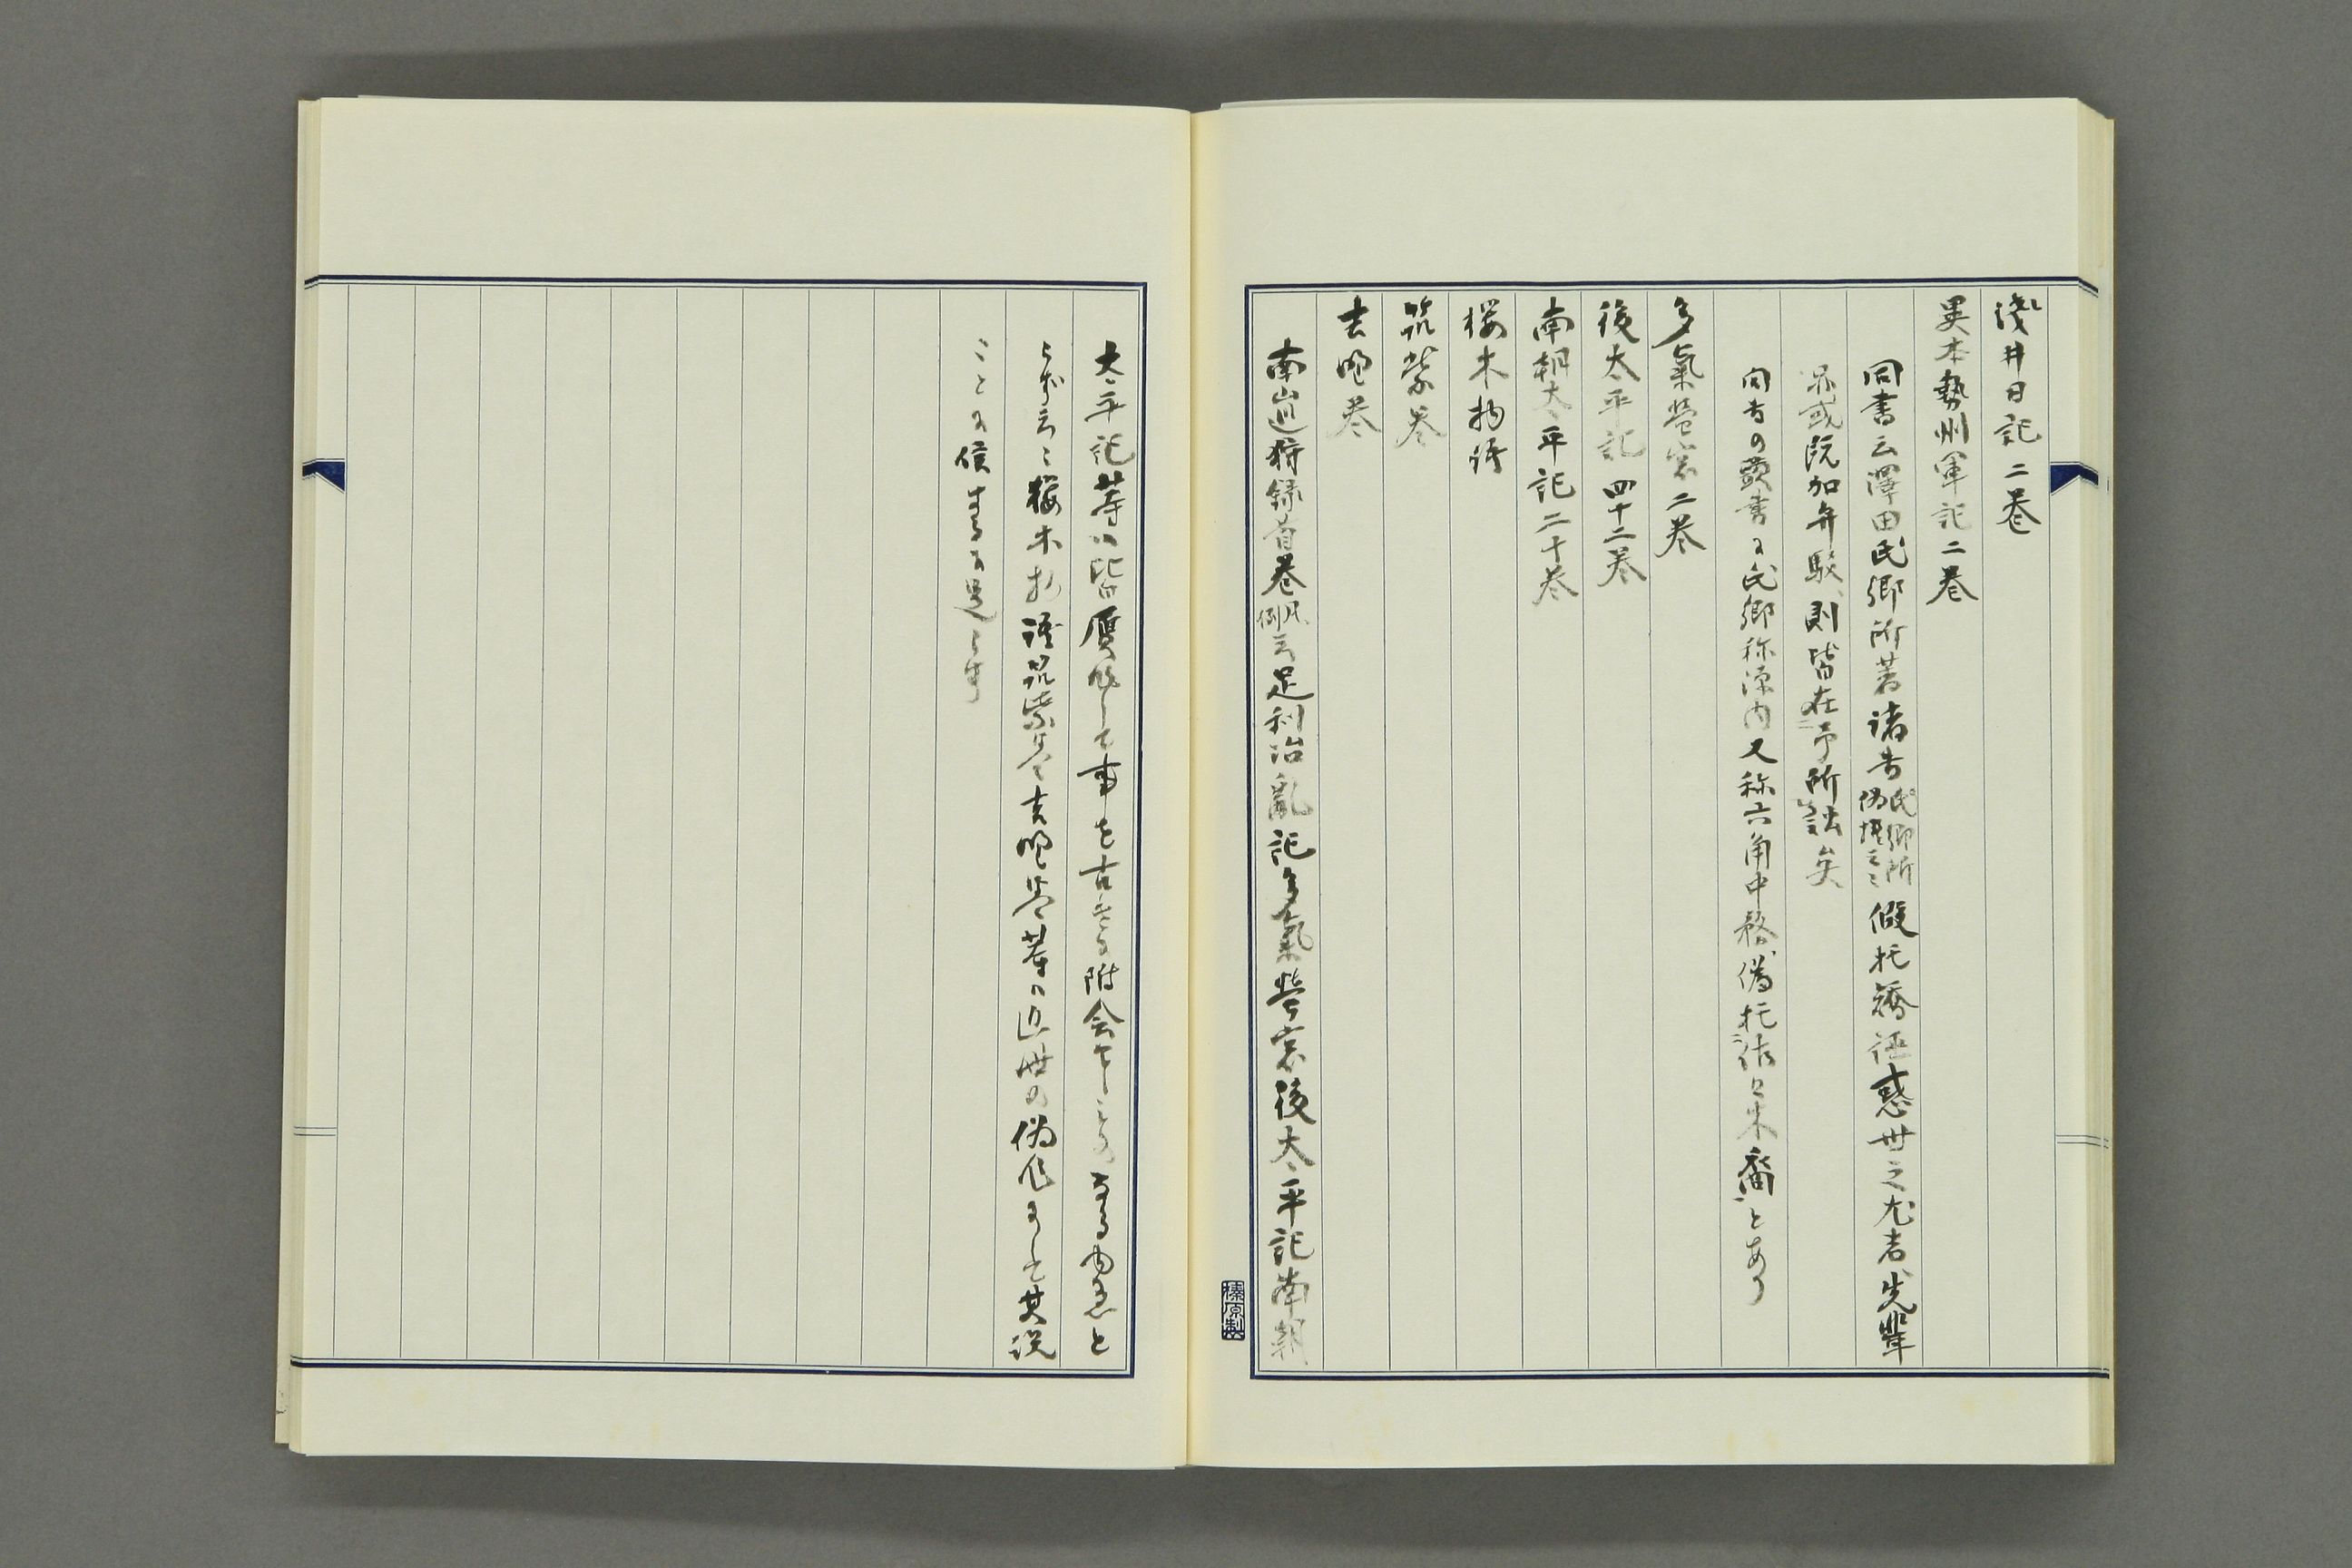 淺井日記二巻
異本勢州軍記二巻
同書云澤田氏郷所著諸書氏郷所偽撰云々假托矯誣惑世之尤者先輩
亦或既加弁駁則皆在予所詘矣
同書の頭書に氏郷称源内又称六角中務偽托佐々木裔とあり
多氣窓螢二巻
後太平記四十二巻
南朝太平記二十巻
櫻木物語
筑紫巻
吉野巻
南山巡狩録首巻凡例云足利治亂記多氣螢窓後太平記南朝
太平記等ハ皆贋作して事を古書に附会せしもの
らず云々櫻木物語筑紫巻吉野巻等ハ近世の偽作にして其説
ことに信ずるに足らず
榛原製